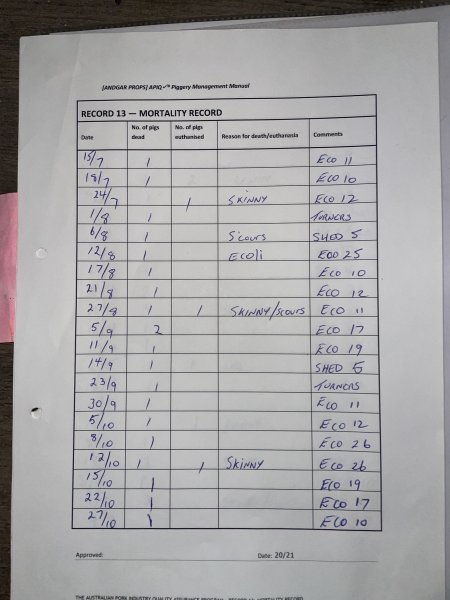 [ANDGAR PROPS] APIQ✓™ Piggery Management Manual
RECORD 13 — MORTALITY RECORD
Date No. of pigs dead No. of pigs euthanised Reason for death/euthanasia Comments
15/7 1 ECO 11
18/7 1 ECO 10
24/7 1 SKINNY ECO 12
1/8 1 TURNERS
6/8 1 Scours SHED 5
12/8 1 Ecoli ECO 25
17/8 1 ECO 10
21/8 1 ECO 12
27/8 1 1 SKINNY/SCOURS ECO 11
5/9 2 ECO 17
11/9 1 ECO 19
14/9 1 SHED 5
23/9 1 TURNERS
30/9 1 ECO 11
5/10 1 ECO 12
8/10 1 ECO 26
12/10 1 1 SKINNY ECO 26
15/10 1 ECO 19
22/10 1 ECO 17
27/10 1 ECO 10
Approved: Date: 20/21
THE AUSTRALIAN PORK INDUSTRY QUALITY ASSURANCE PROGRAM